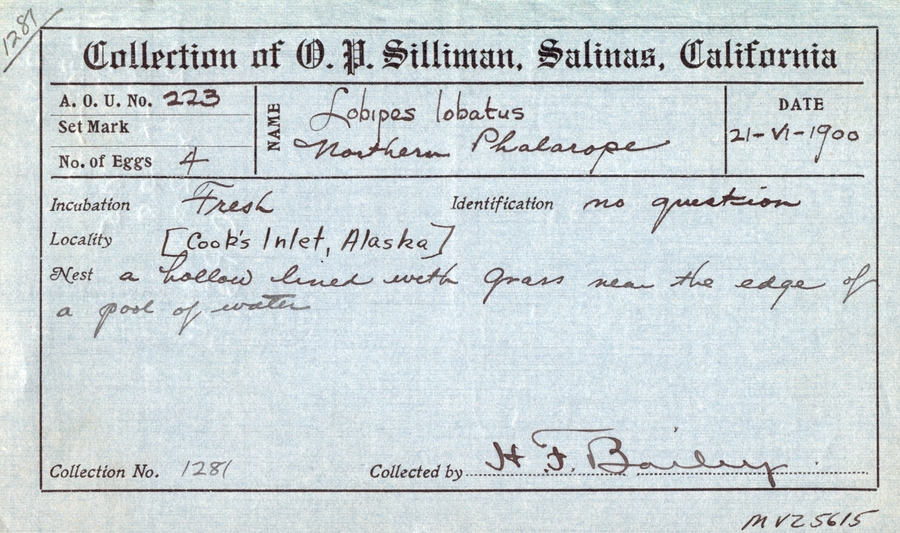 1281
Collection of O. P. Silliman, Salinas, California
A. O. U. No. 223
Set Mark
No. of Eggs 4
NAME
Lobipes lobatus
Northern Phalarope
DATE
21-VI-1900
Incubation Fresh Identification no question
Locality [Cook's Inlet, Alaska]
Nest a hollow lined with grass near the edge of
a pool of water
Collection No. 1281 Collected by H F. Bailey
MVZ 5615